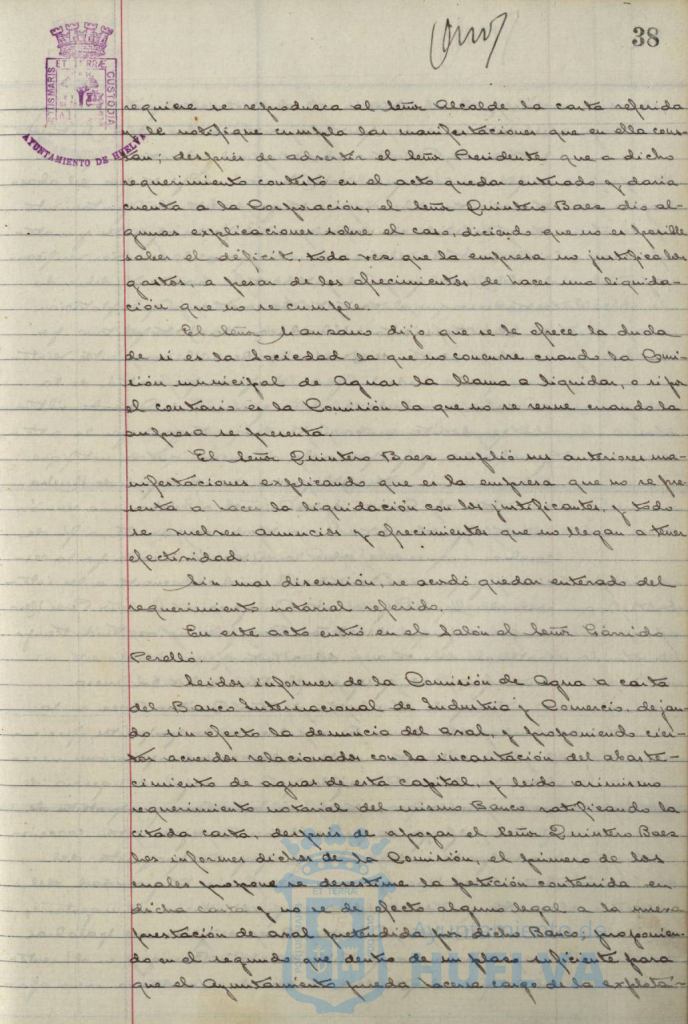 38
ET TERRAE
PORTUS MARIS
CUSTODIA
AYUNTAMIENTO DE HUELVA
requiere se reproduzca al Señor Alcalde la carta referida
y le notifique cumpla las manifestaciones que en ella cons-
tan; después de advertir el Señor Presidente que a dicho
requerimiento contestó en el acto quedar enterado y daría
cuenta a la Corporación, el Señor Quintero Baez dió al-
gunas explicaciones sobre el caso, diciendo que no es posible
saber el déficit, toda vez que la empresa no justifica los
gastos, a pesar de los ofrecimientos de hacer una liquida-
ción que no se cumple.
El Señor Manzano dijo que se le ofrece la duda
de si es la Sociedad la que no concurre cuando la Comi-
sión municipal de Aguas la llama a liquidar, o si por
el contrario es la Comisión la que no se reune cuando la
empresa se presenta.
El Señor Quintero Baez amplió sus anteriores ma-
nifestaciones explicando que es la empresa que no se pre-
senta a hacer la liquidación con los justificantes, y todo
se vuelven anuncios y ofrecimientos que no llegan a tener
efectividad.
Sin mas discusión, se acordó quedar enterado del
requerimiento notarial referido.
En este acto entró en el Salón el Señor Garrido
Perelló.
Leidos informes de la Comisión de Agua a carta
del Banco Internacional de Industria y Comercio, dejan-
do sin efecto la denuncia del aval, y proponiendo cier-
tos acuerdos relacionados con la incautación del abaste-
cimiento de aguas de esta capital, y leido asimismo
requerimiento notarial del mismo Banco ratificando la
citada carta, después de apoyar el Señor Quintero Baez
los informes dichos de la Comisión, el primero de los
cuales propone se desestime la petición contenida en
dicha carta y no se de efecto alguno legal a la nueva
prestación de aval pretendida por dicho Banco; proponien-
do en el segundo que dentro de un plazo suficiente para
que el Ayuntamiento pueda hacerse cargo de la explota-
Ayuntamiento de
HUELVA